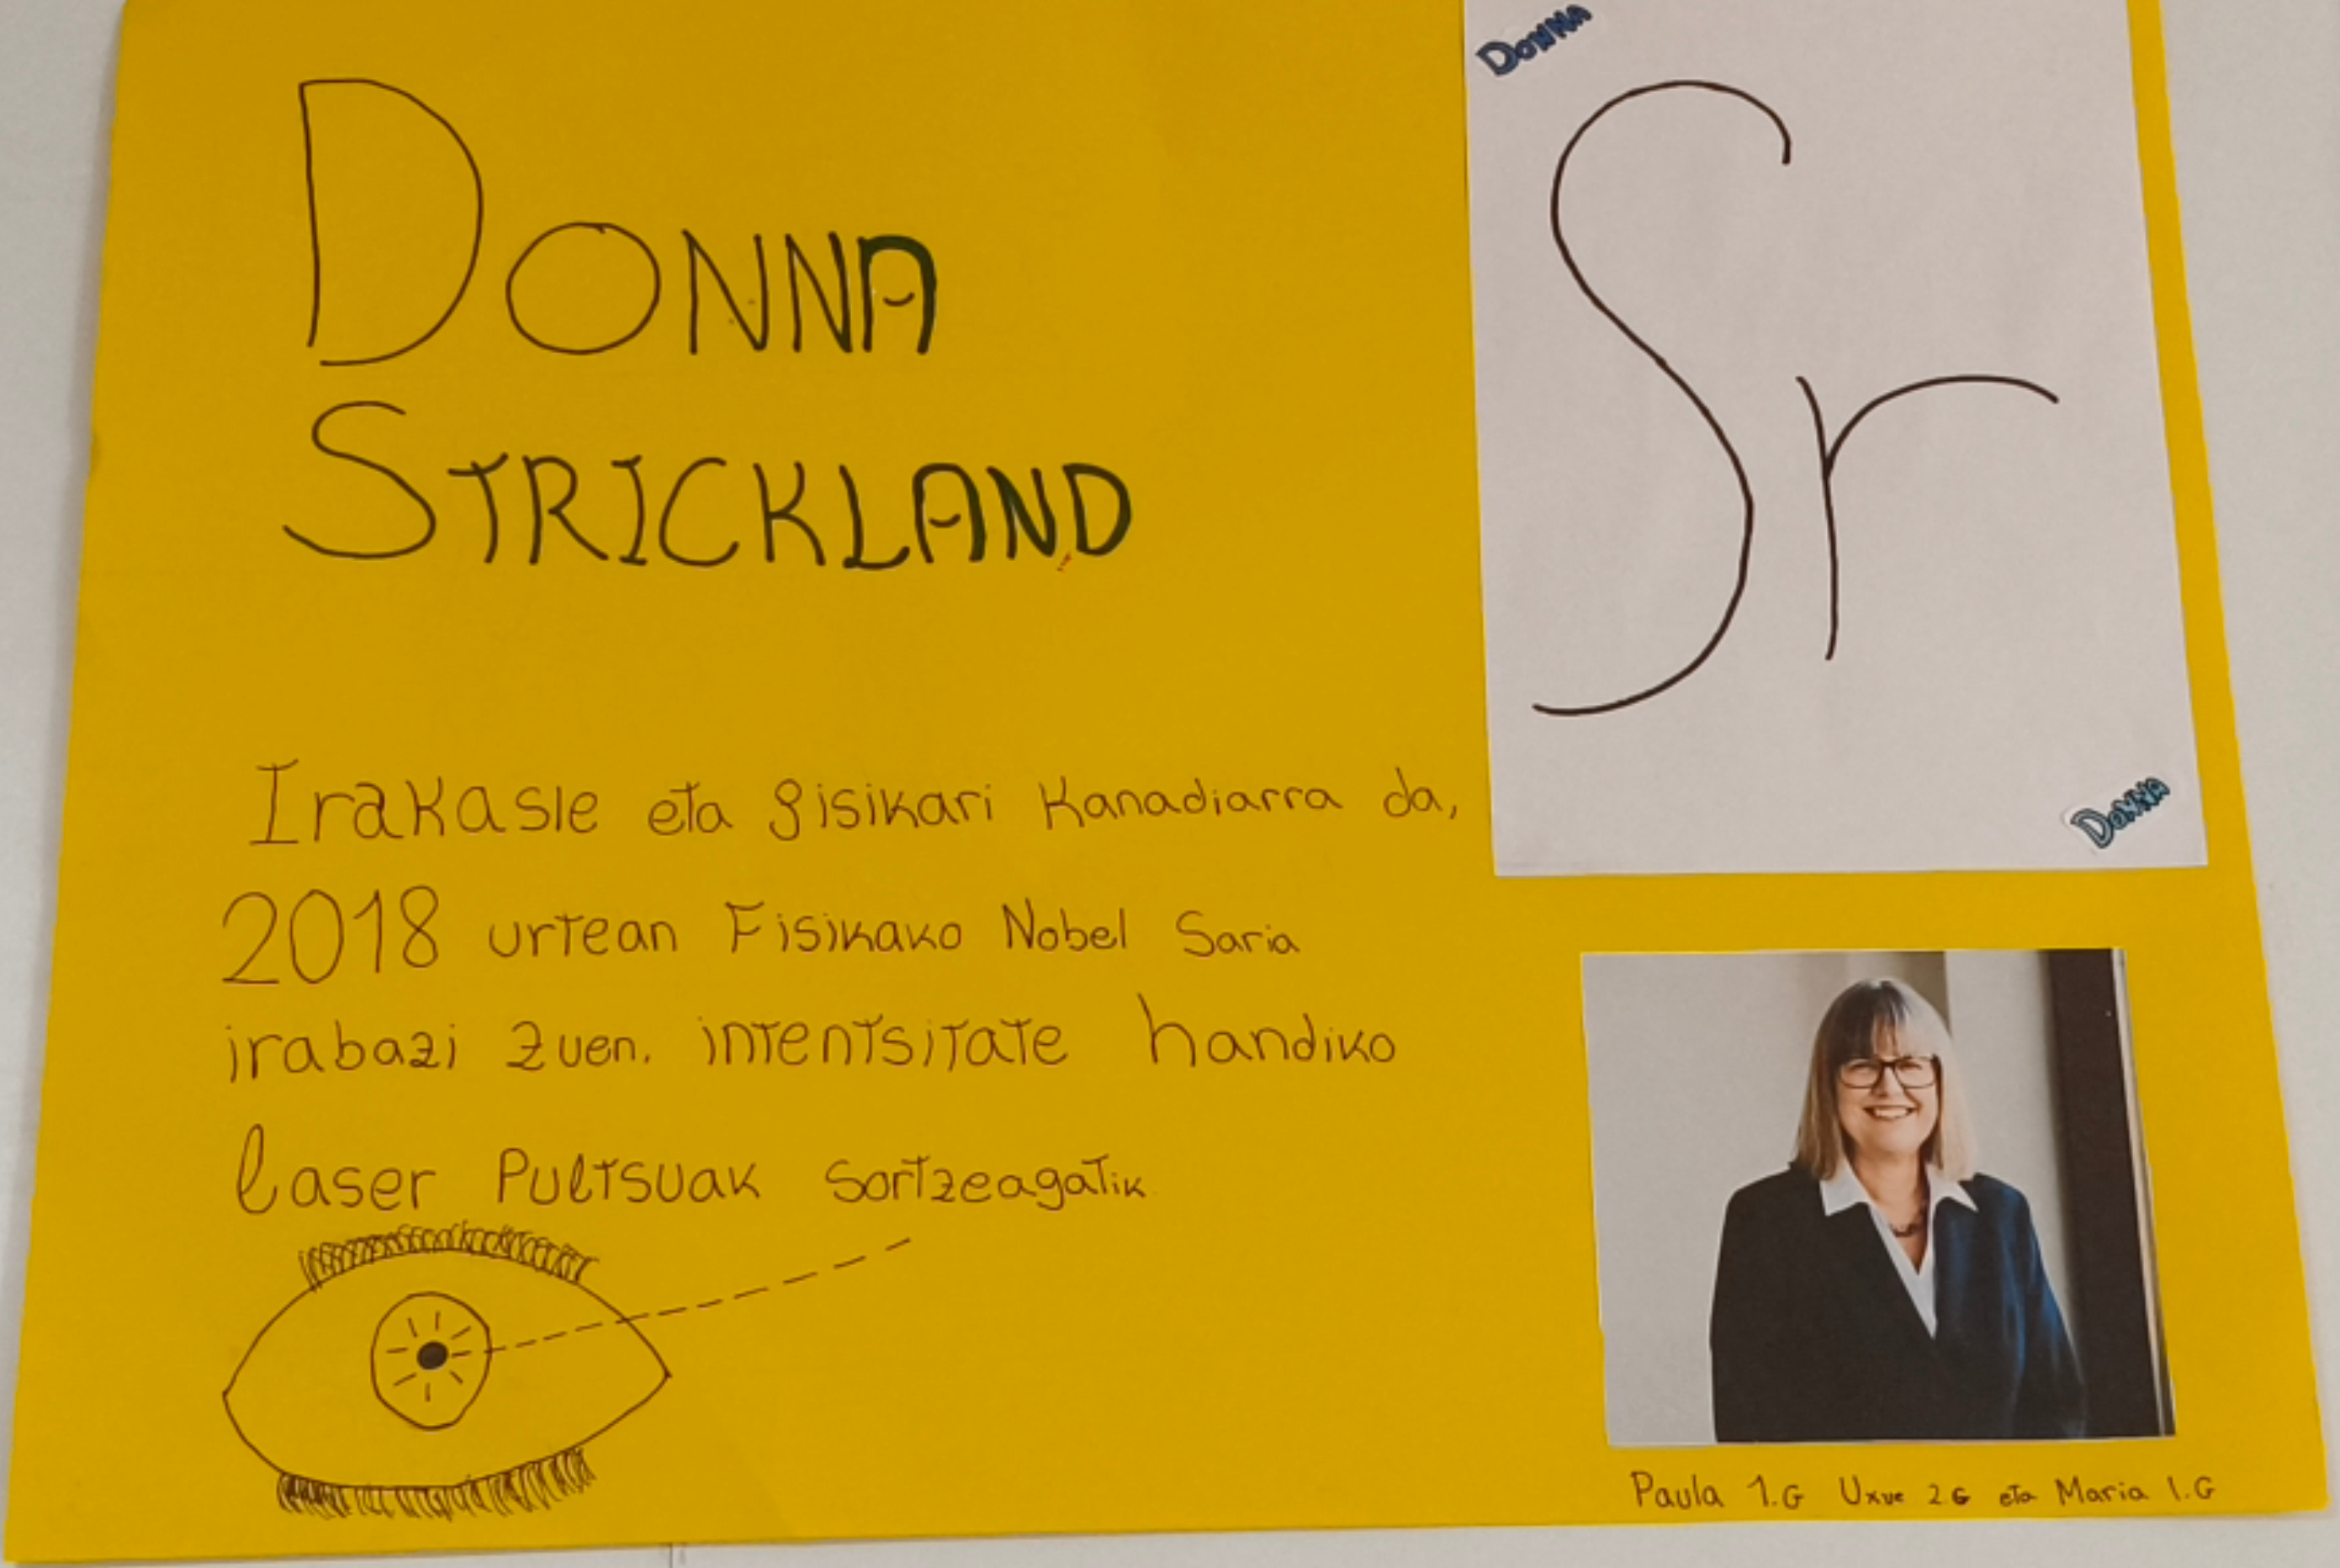 DONNA
STRICKLAND
Irakasle eta fisikari Kanadiarra da,
2018 urtean Fisikako Nobel Saria
irabazi zuen. intentsitate handiko
laser Pultsuak sortzeagatik
DONNA
Sr
DONNA
Paula 1.G Uxue 2.G eta Maria 1.G